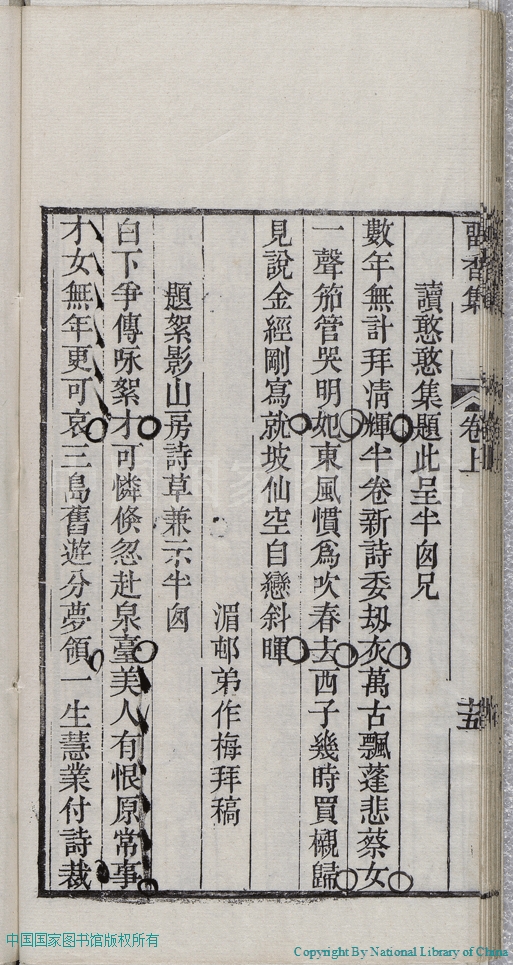 香集
卷上
十五
讀憨憨集題此呈半囪兄
數年無計拜清輝半卷新詩委刼灰萬古飄蓬悲蔡女
一聲笳管哭明妃東風慣爲吹春去西子幾時買櫬歸
見說金經剛寫就坡仙空自戀斜暉
湄邨弟作梅拜稿
題絮影山房詩草兼示半囪
白下爭傳咏絮才可憐倐忽赴泉臺美人有恨原常事
才女無年更可哀三島舊遊分夢領一生慧業付詩裁
中国国家图书馆版权所有
Copyright By National Library of China